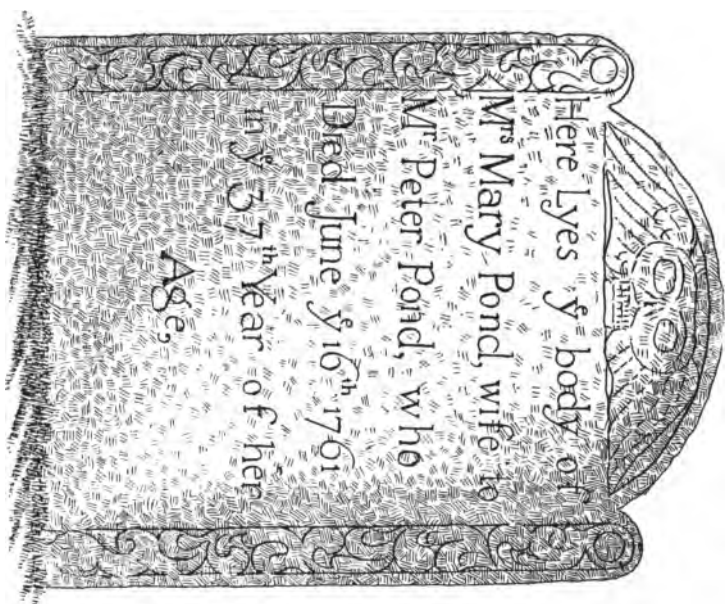 Here Lyes yͤ body of
Mʳˢ Mary Pond, wife to
Mʳ Peter Pond, who
Died June yͤ 16ᵗʰ 1761
in yͤ 37ᵗʰ Year of her
Age,